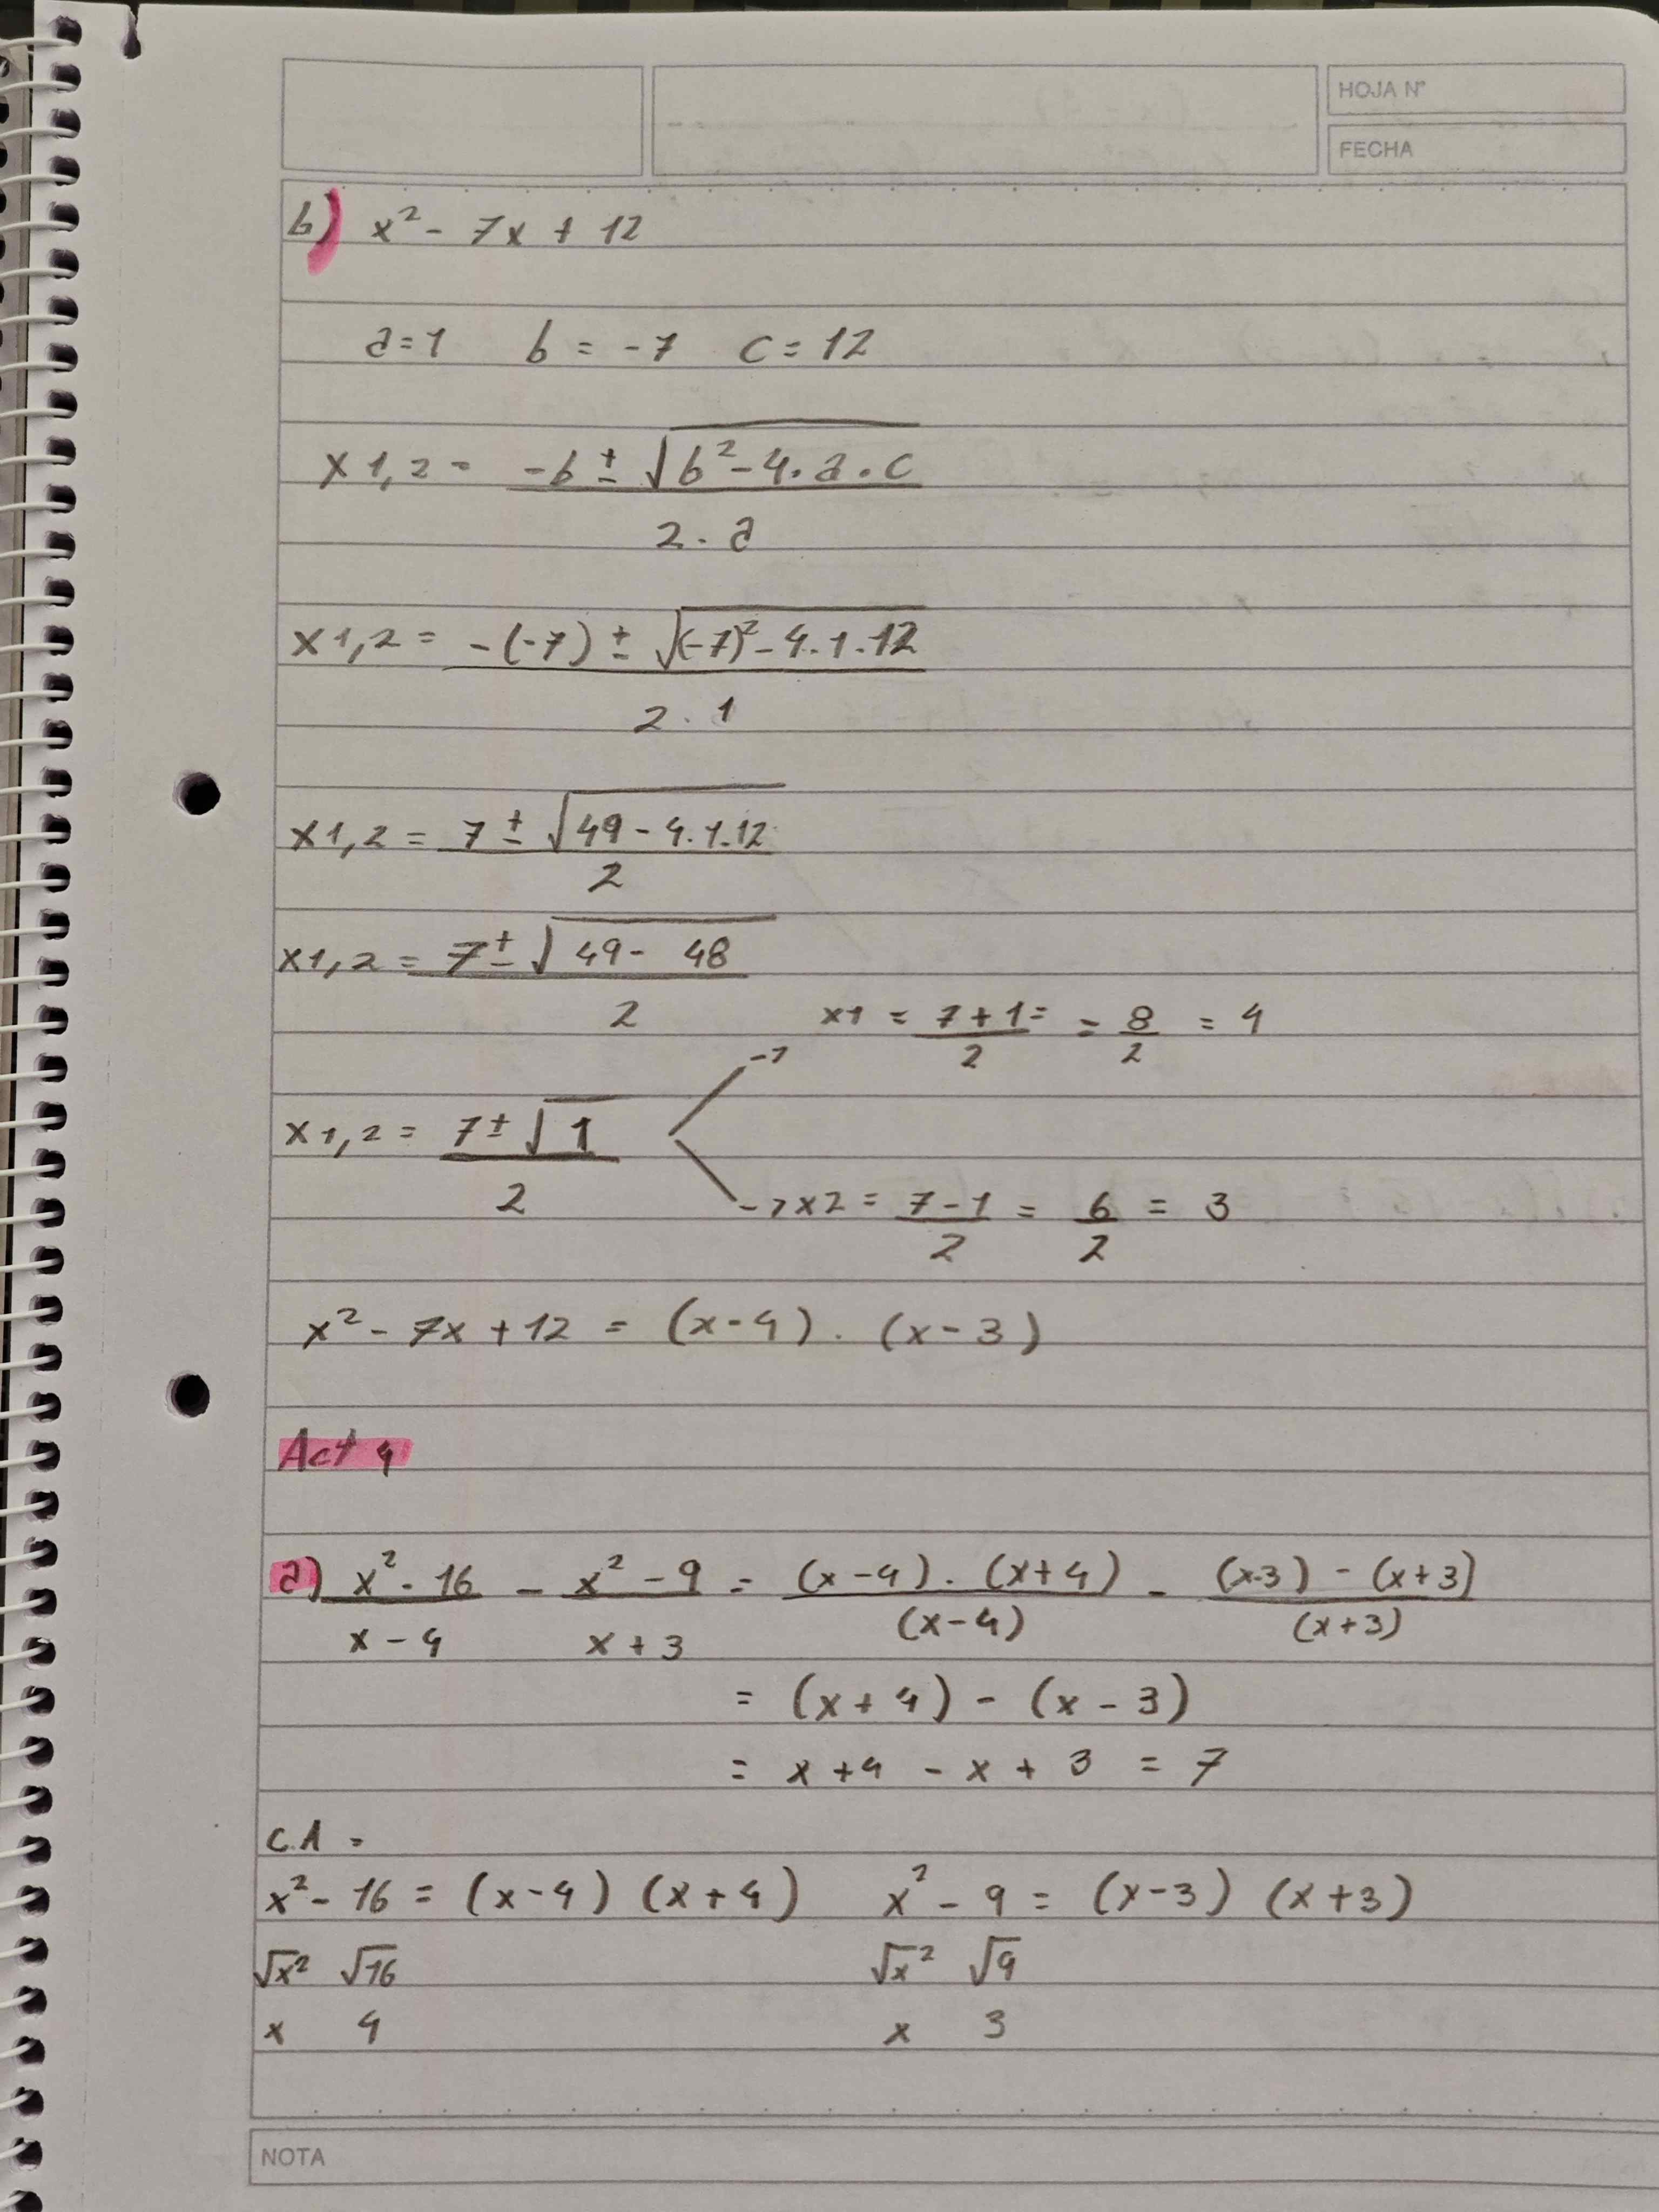 HOJA N°
FECHA
b) x² - 7x + 12
a=1 b = -7 c = 12
x1,2 = -b ± √b² - 4 . a . c
2 . a
x1,2 = -(-7) ± √(-7)² - 4 . 1 . 12
2 . 1
x1,2 = 7 ± √49 - 4 . 1 . 12
2
x1,2 = 7 ± √49 - 48
2
x1 = 7 + 1 = = 8 = 4
2 2
x1,2 = 7 ± √1
2
x2 = 7 - 1 = 6 = 3
2 2
x² - 7x + 12 = (x - 4) . (x - 3)
Act 4
a) x² - 16 - x² - 9 = (x - 4) . (x + 4) - (x-3) - (x + 3)
x - 4 x + 3 (x - 4) (x + 3)
= (x + 4) - (x - 3)
= x + 4 - x + 3 = 7
C.A =
x² - 16 = (x - 4) (x + 4) x² - 9 = (x - 3) (x + 3)
√x² √16 √x² √9
x 4 x 3
NOTA